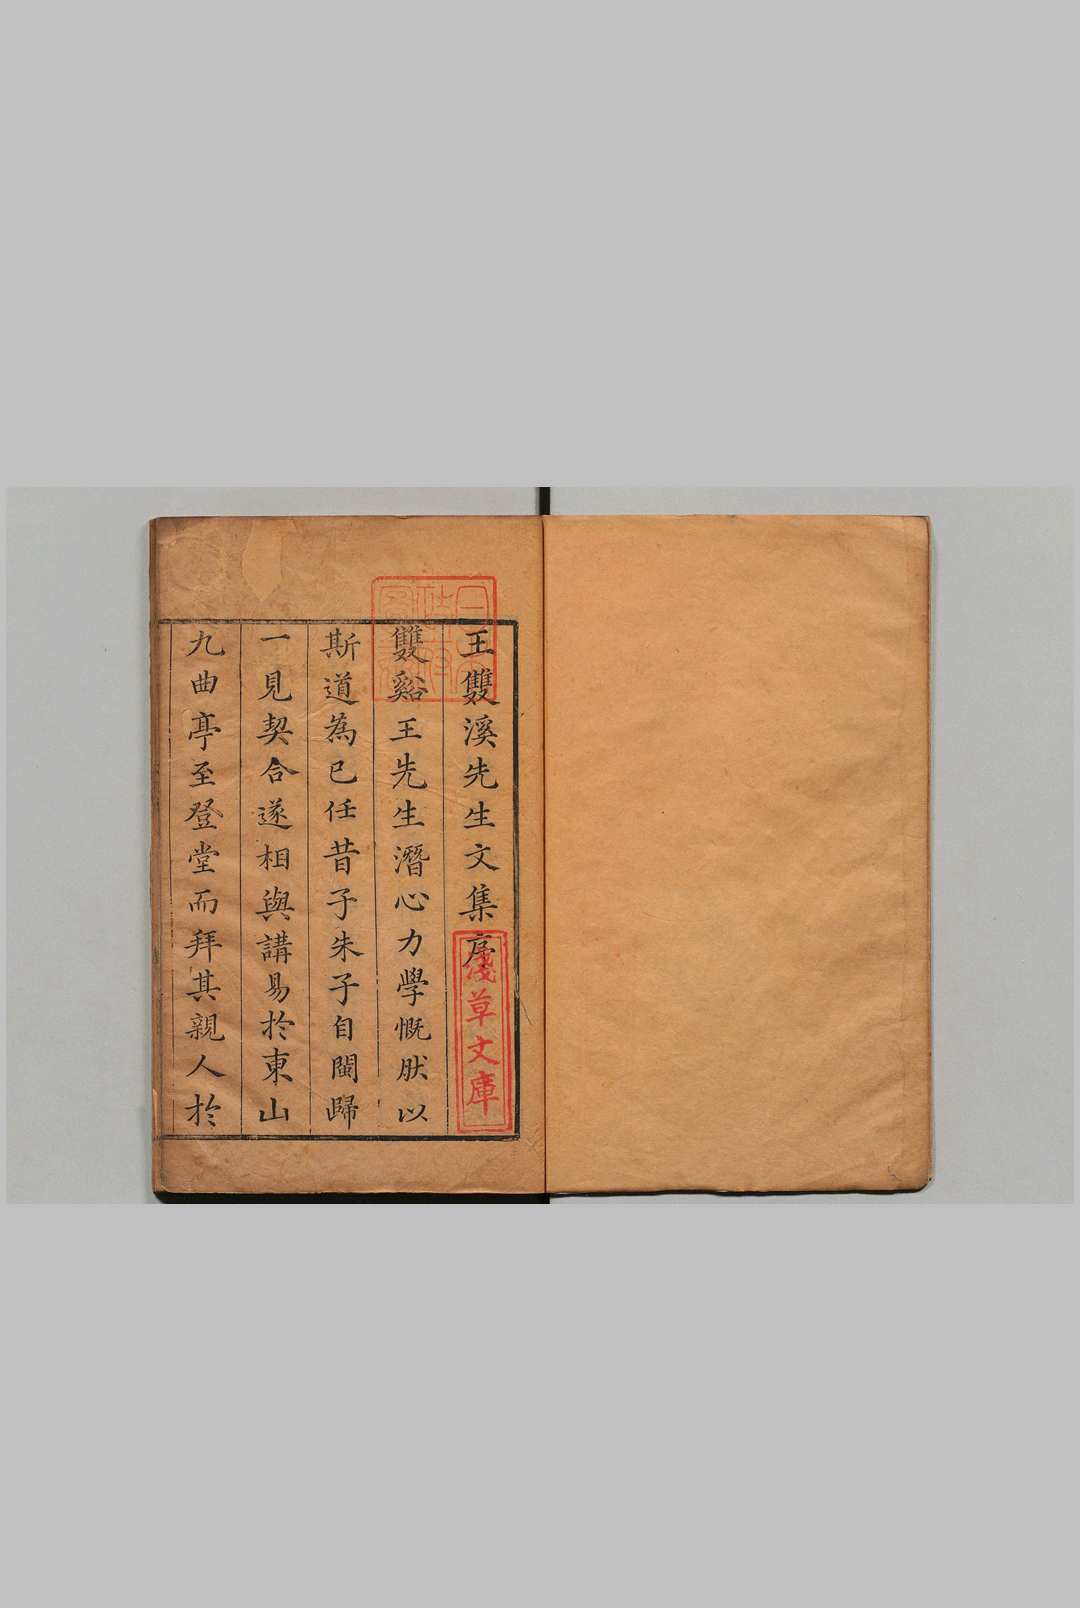 王雙溪先生文集序
雙谿王先生潛心力學慨肰以
斯道為已任昔子朱子自閩歸
一見契合遂相與講易於東山
九曲亭至登堂而拜其親人於
淺草文庫